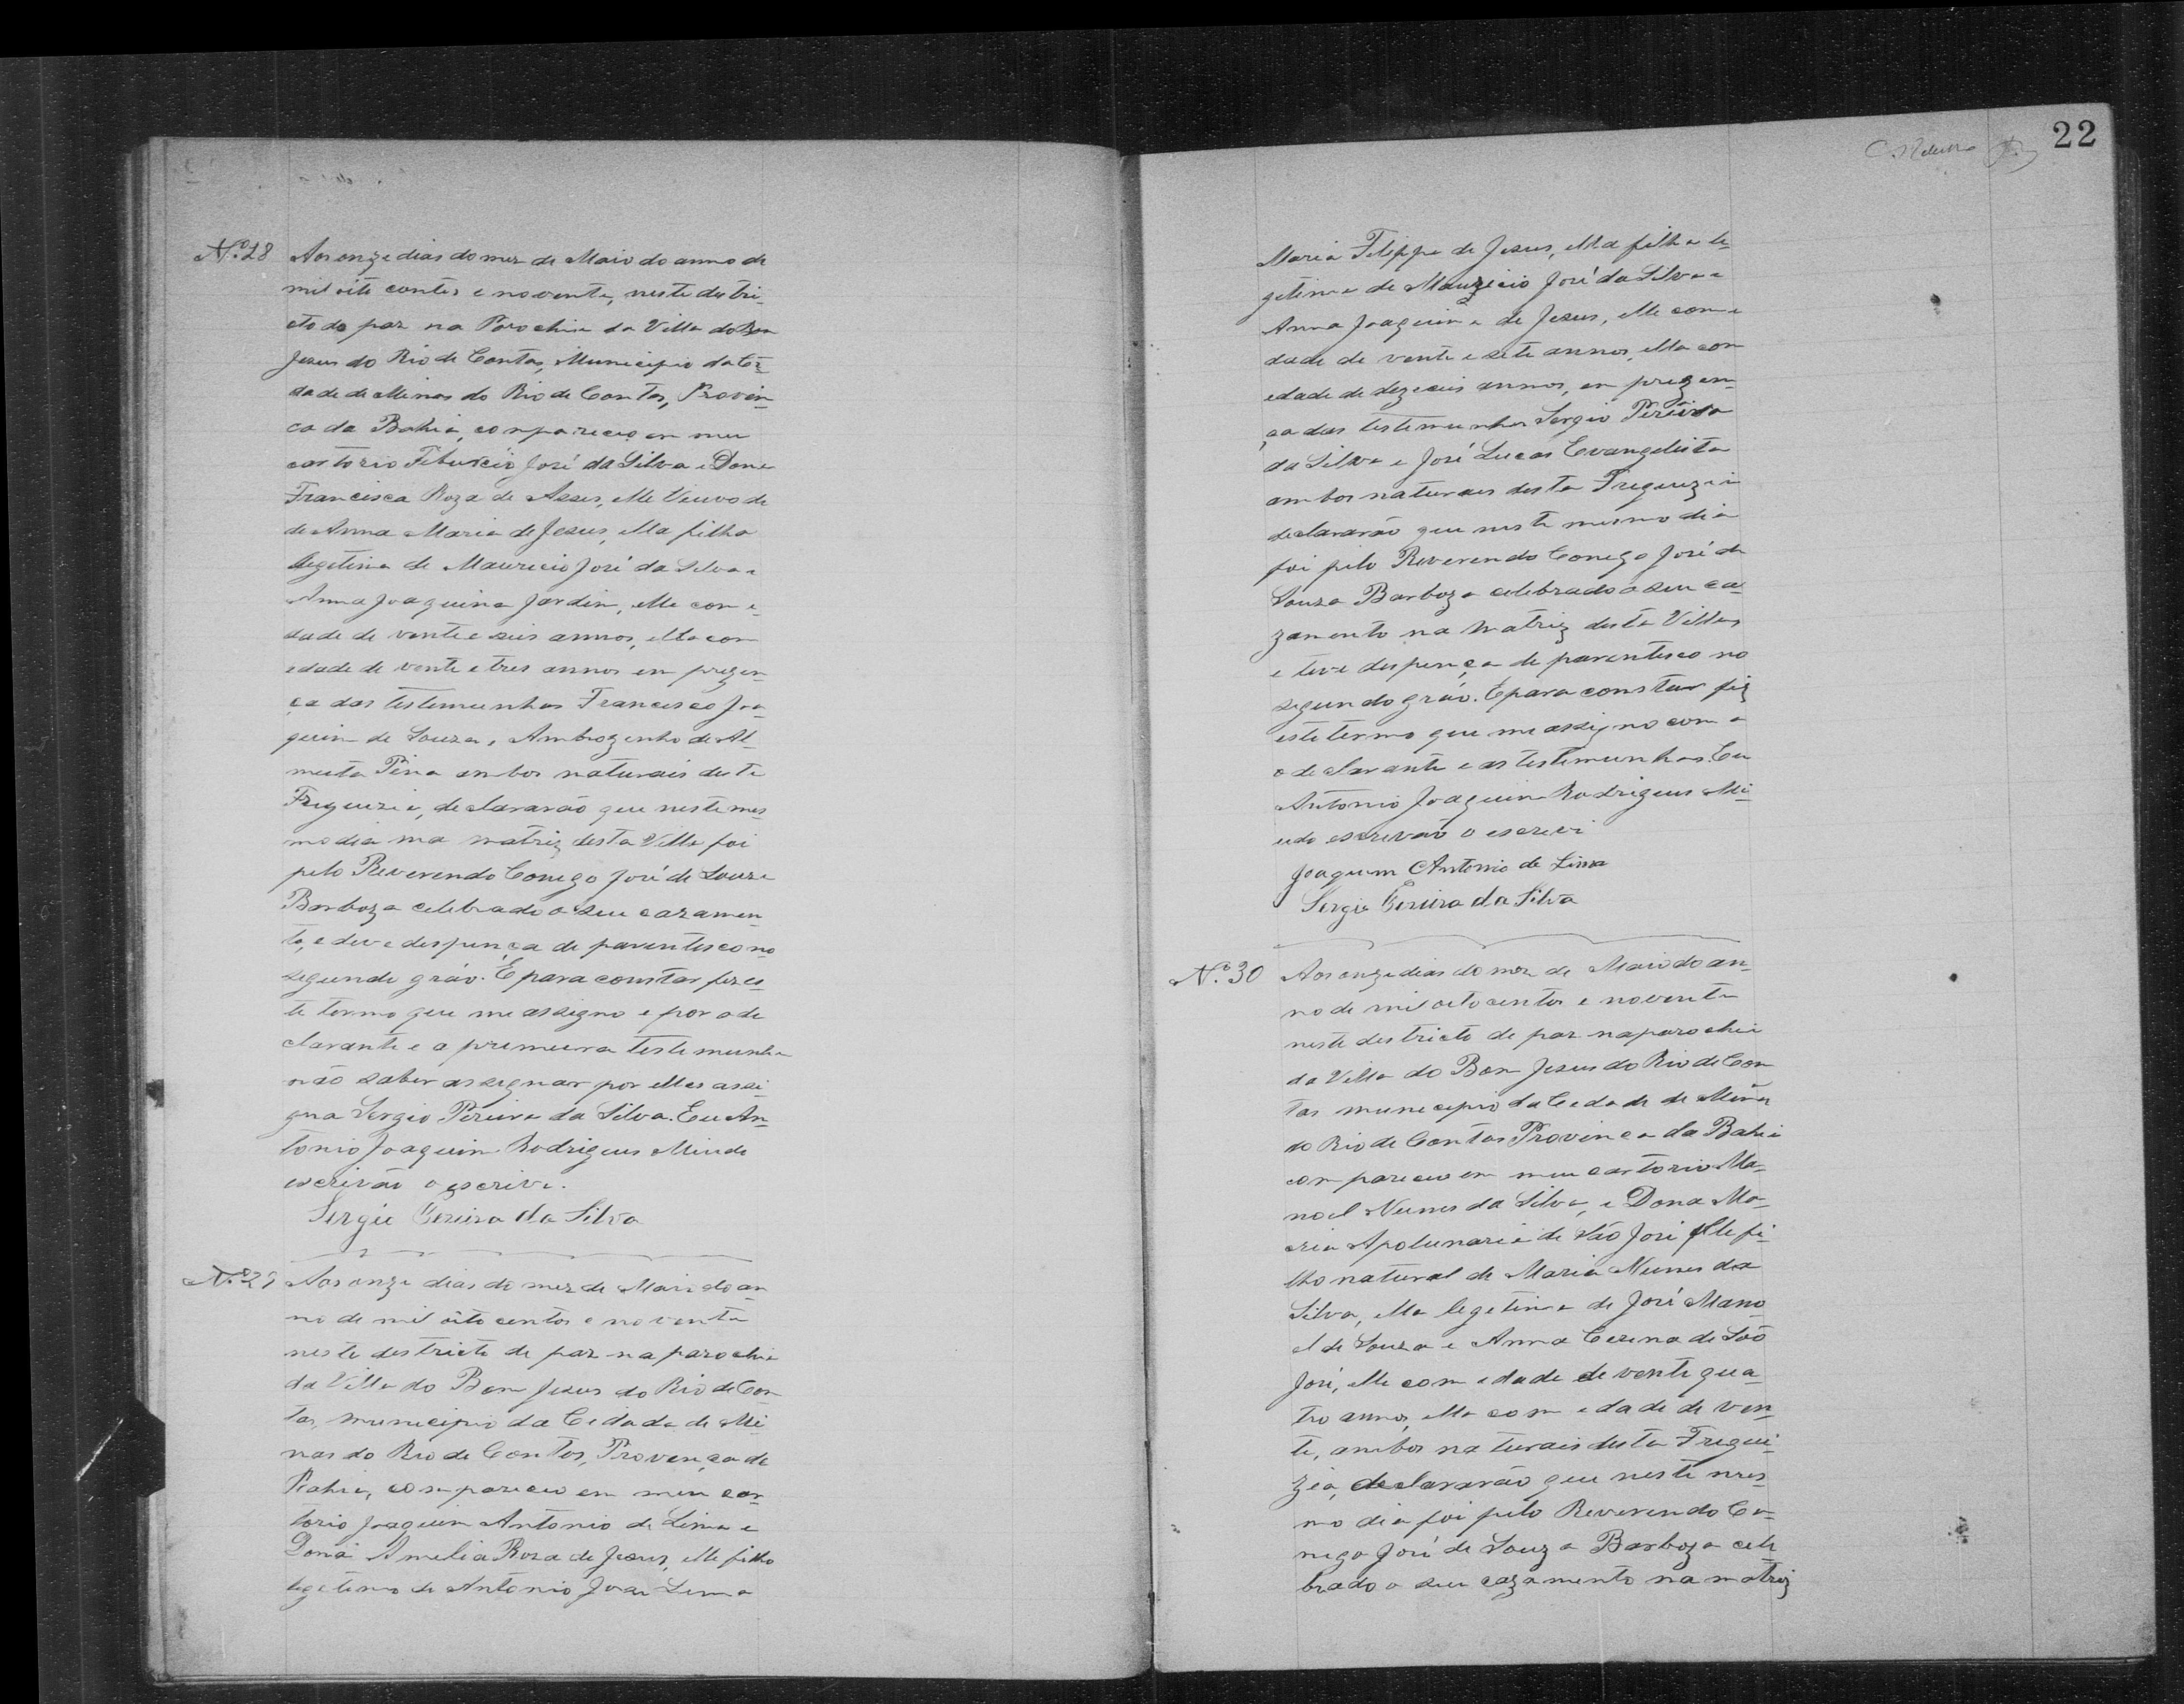 Nº 28
Aos onze dias do mez de Maio do anno de
mil oito centos e noventa, neste destri-
cto de paz na Parochia da Villa do Bom
Jesus do Rio de Contas, Municipio da Ci-
dade de Minas do Rio de Contas, Provin-
ca da Bahia, compareceo em meu
cartorio José da Silva e Dona
Francisca Roza de Assis, elle Viuvo de
de Anna Maria de Jesus, ella filha
legitima de Mauricio José da Silva e
Anna Joaquina Jardim, elle com e
dade de vente e seis annos, ella com
edade de vente e tres annos em prezen-
ça das testemunhas Francisco Joa-
quim de Souza, Ambrozinho de Al-
meida Pina ambos naturais desta
Freguezia, declararão que neste mes
mo dia na matriz desta Villa foi
pelo Reverendo Conego José de Souza
Barboza celebrado o seu cazamen-
to, e deve despença de parentesco no
segundo gráo. E para constar fiz es-
te termo que me assigno e por o de
clarante e a premeira testemunha
não saber assignar por elles assi-
gna Sergio Pereira da Silva. Eu An-
tonio Joaquim Rodrigues Miudo
escrivão o escrive.
Sergio Pereira da Silva
Nº 29
Aos onze dias do mez de Maio do an-
no de mil oito centos e noventa
neste destricto de paz na parochia
da Villa do Bom Jesus do Rio de Con-
tas, municipio da Cidade de Mi-
nas do Rio de Contas, Provença da
Bahia, compareceu em meu car-
torio Joaquim Antonio de Lima e
Dona Amelia Roza de Jesus, elle filho
legetimo de Antonio José Lima
22
Maria Filippa de Jesus, ella filha le-
getima de Mauricio José da Silva e
Anna Joaquina de Jesus, elle com e
dade de vente e sete annos, ella com
edade de dezeceis annos, em prezen-
ça das testemunhas Sergio Pereira
da Silva e José Lucas Evangelista
ambos naturaes desta Freguezia
declararão que neste mesmo dia
foi pelo Reverendo Conego José de
Souza Barboza celebrado o seu ca-
zamento na Matriz desta Villa
e teve despença de parentesco no
segundo gráo. E para constar fiz
este termo que me assigno com
o declarante e as testemunhas. Eu
Antonio Joaquim Rodrigues Mi-
udo escrevão o escrevi
Joaquim Antonio de Lima
Sergio Pereira da Silva
Nº 30
Aos onze dias do mez de Maio do an-
no de mil oito centos e noventa
neste destricto de paz na parochia
da Villa do Bom Jesus do Rio de Con
tas municipio da Cedade de Minas
do Rio de Contas Provinca da Bahia
compareceu em meu cartorio Ma-
noel Nunes da Silva, e Dona Ma-
ria Apolunaria de São José elle fi-
lho natural de Maria Nunes da
Silva, ella legetima de José Mano
el de Souza e Anna de São
José, elle com edade de vente qua-
tro annos, ella com edade de ven-
te, ambos naturais desta Fregue-
zia, declararão que neste mes-
mo dia foi pelo Reverendo Co-
nego José de Souza Barboza cele
brado o seu cazamento na matriz